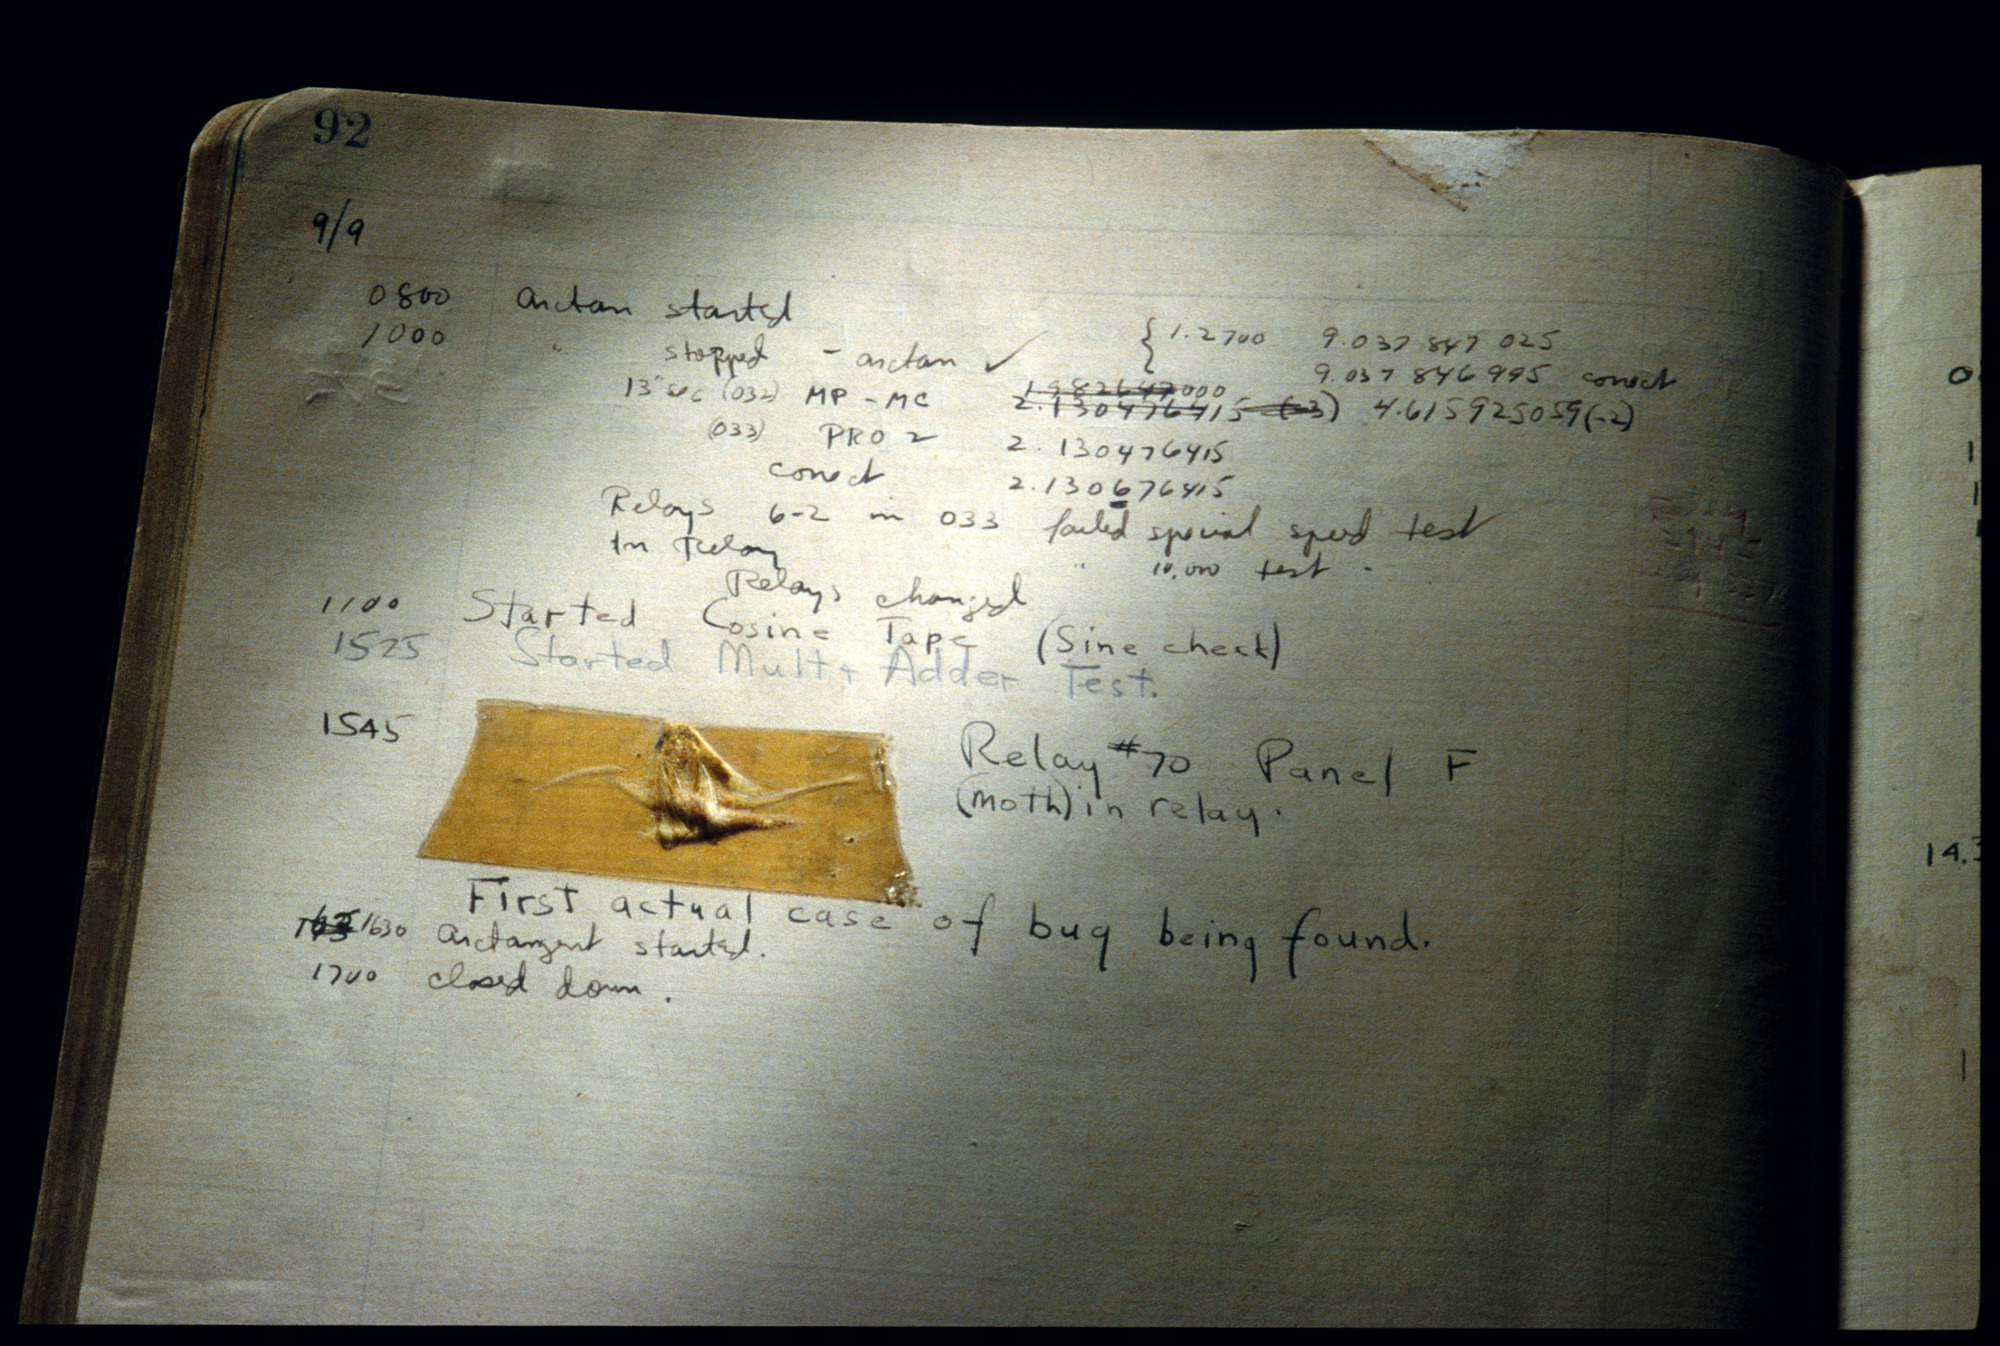 92
9/9
0800 arctan started
1000 " stopped - arctan ✓ { 1.2700 9.037 847 025
9.037 846 995 correct
13" sec (032) MP - MC 1.982647000
2.130476415 (-3) 4.615925059(-2)
(033) PRO 2 2.130476415
correct 2.130676415
Relays 6-2 in 033 failed special speed test
In Relay " 10,000 test .
Relays changed
1100 Started Cosine Tape (Sine check)
1525 Started Mult + Adder Test.
1545 Relay #70 Panel F
(moth) in relay.
First actual case of bug being found.
1630 arctangent started.
1700 closed down.